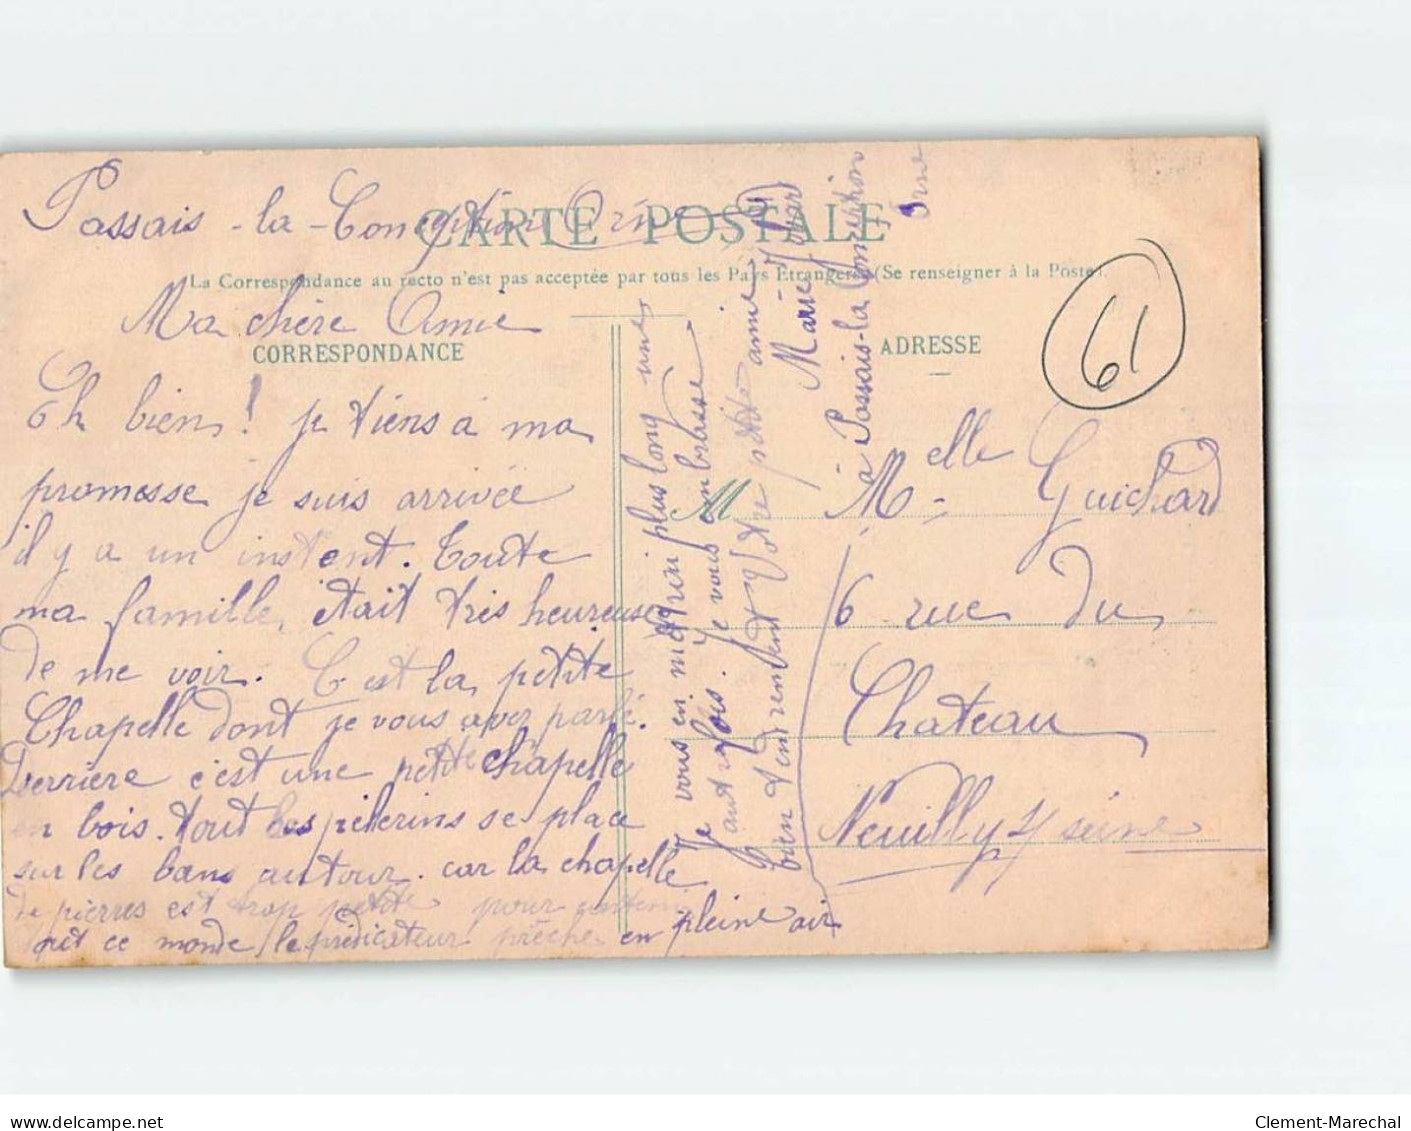 Passais-la-Conception Orne
CARTE POSTALE
La Correspondance au recto n'est pas acceptée par tous les Pays Etrangers (Se renseigner à la Poste).
Ma chère Amie
CORRESPONDANCE
Eh bien! je tiens à ma
promesse je suis arrivée
il y a un instent. Toute
ma famille, était très heureuse
de me voir. C'est la petite
Chapelle dont je vous avez parlé.
Derrière c'est une petite chapelle
en bois. tout les pélerins se place
sur les bans autour. car la chapelle
de pierres est trop petite pour contenir
tout ce monde le prédicateur prêche en pleine air
Je vous en métrai plus long une
autre fois. Je vous embrasse
bien tendrement Votre petite amie
Marie
à Passais-la-Conception
Orne
ADRESSE
61
M
Melle Guichard
6 rue du
Château
Neuilly s/ seine
Clement-Marechal
www.delcampe.net